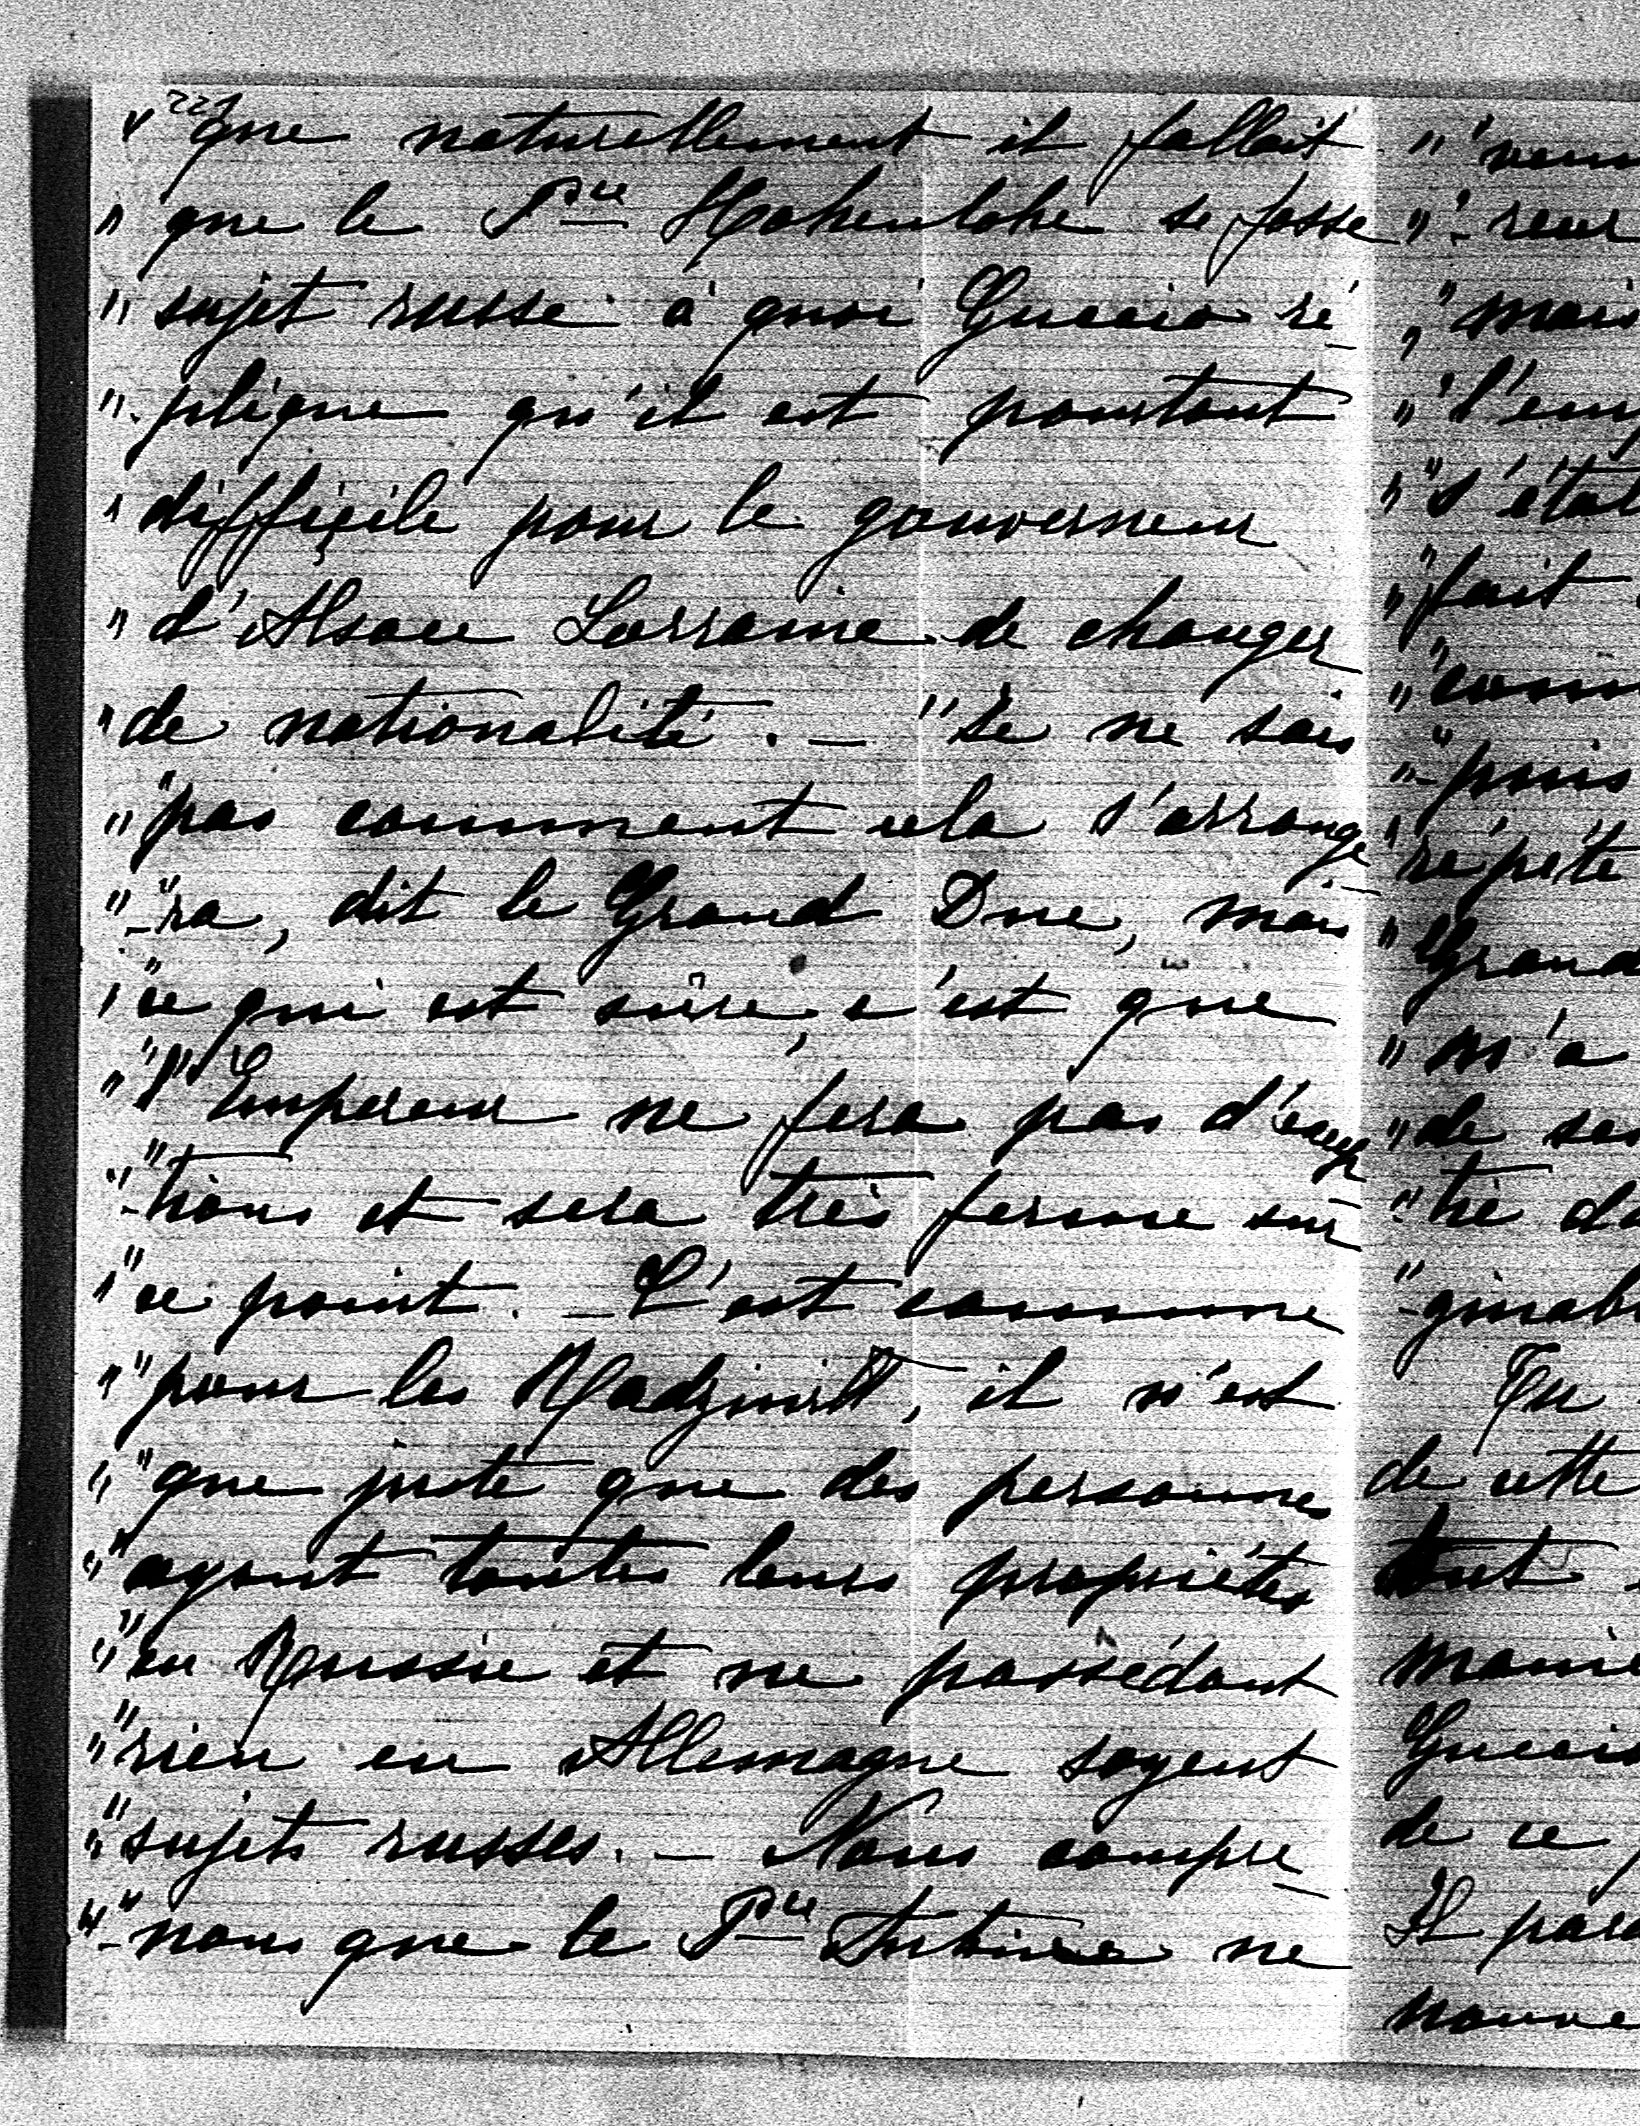 221
" que naturellement il fallait
" que le Pce Hohenlohe se fasse
" sujet russe à quoi Guccio ré
" -plique qu'il est pourtant
" difficile pour le gouverneur
" d'Alsace Lorraine de changer
" de nationalité. — "Je ne sais
" "pas comment cela s'arrange
" "-ra, dit le Grand Duc, mais
" "ce qui est sûre, c'est que
" "l'Empereur ne fera pas d'excep
" "-tions et sera très ferme sur
" "ce point. — C'est comme
" "pour les Radziwill, il n'est
" "que juste que des personnes
" "ayant toutes leurs propriétés
" "en Russie et ne possédant
" "rien en Allemagne soyent
" "sujets russes. — Nous compre
" "-nons que le Pce Antoine ne
" "mais
" "fait
" "-puis
" "répéte
" "Grand
" "m'a
" "de
Tu
de cette
tout
de ce
Il